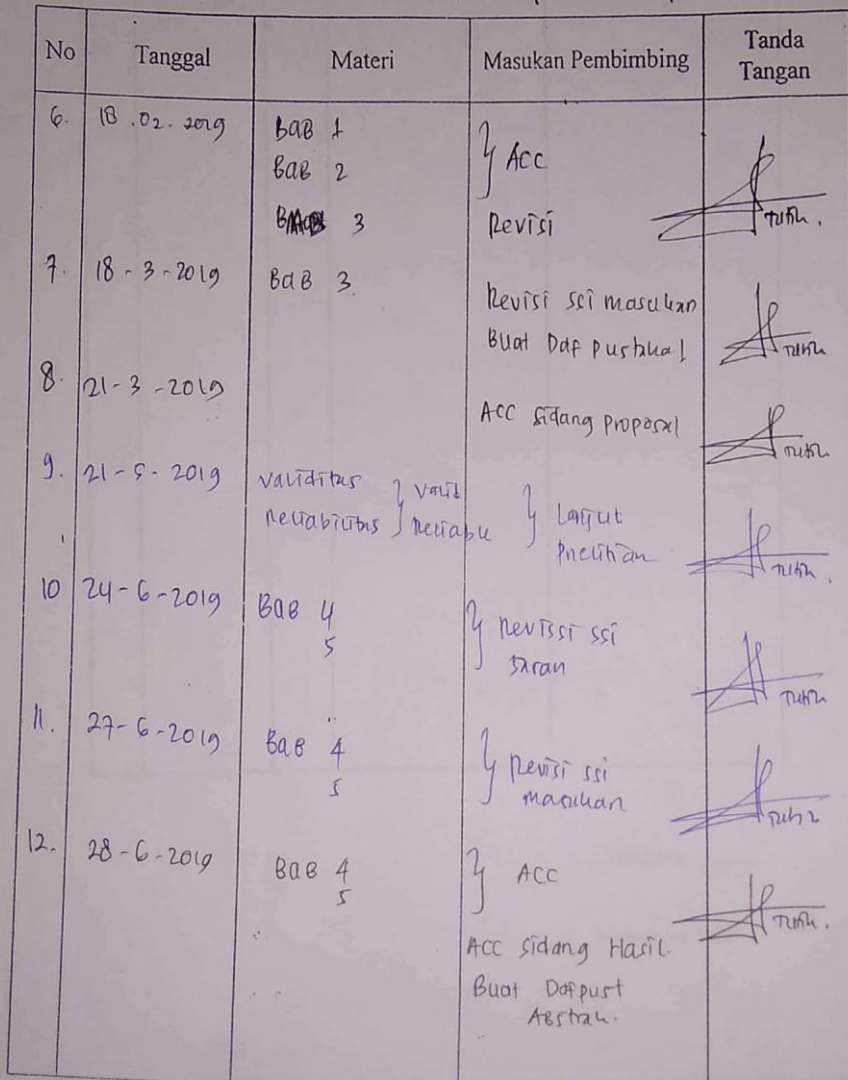 No Tanggal Materi Masukan Pembimbing Tanda Tangan
6. 18.02.2019 BAB 1 } ACC
BAB 2
BAB 3 Revisi Tutik.
7. 18-3-2019 BAB 3 Revisi ssi masukan
Buat Daf pustaka! Tutik
8. 21-3-2019 ACC sidang proposal Tutik
9. 21-5-2019 validitas } valid } Lanjut
reliabilitas reliabel pnelitian Tutik.
10 24-6-2019 BAB 4 } revissi ssi
5 saran Tutik
11. 27-6-2019 BAB 4 } Revisi ssi
5 masukan Tutik
12. 28-6-2019 BAB 4 } ACC
5 Tutik.
ACC sidang Hasil.
Buat Dafpust
Abstrak.